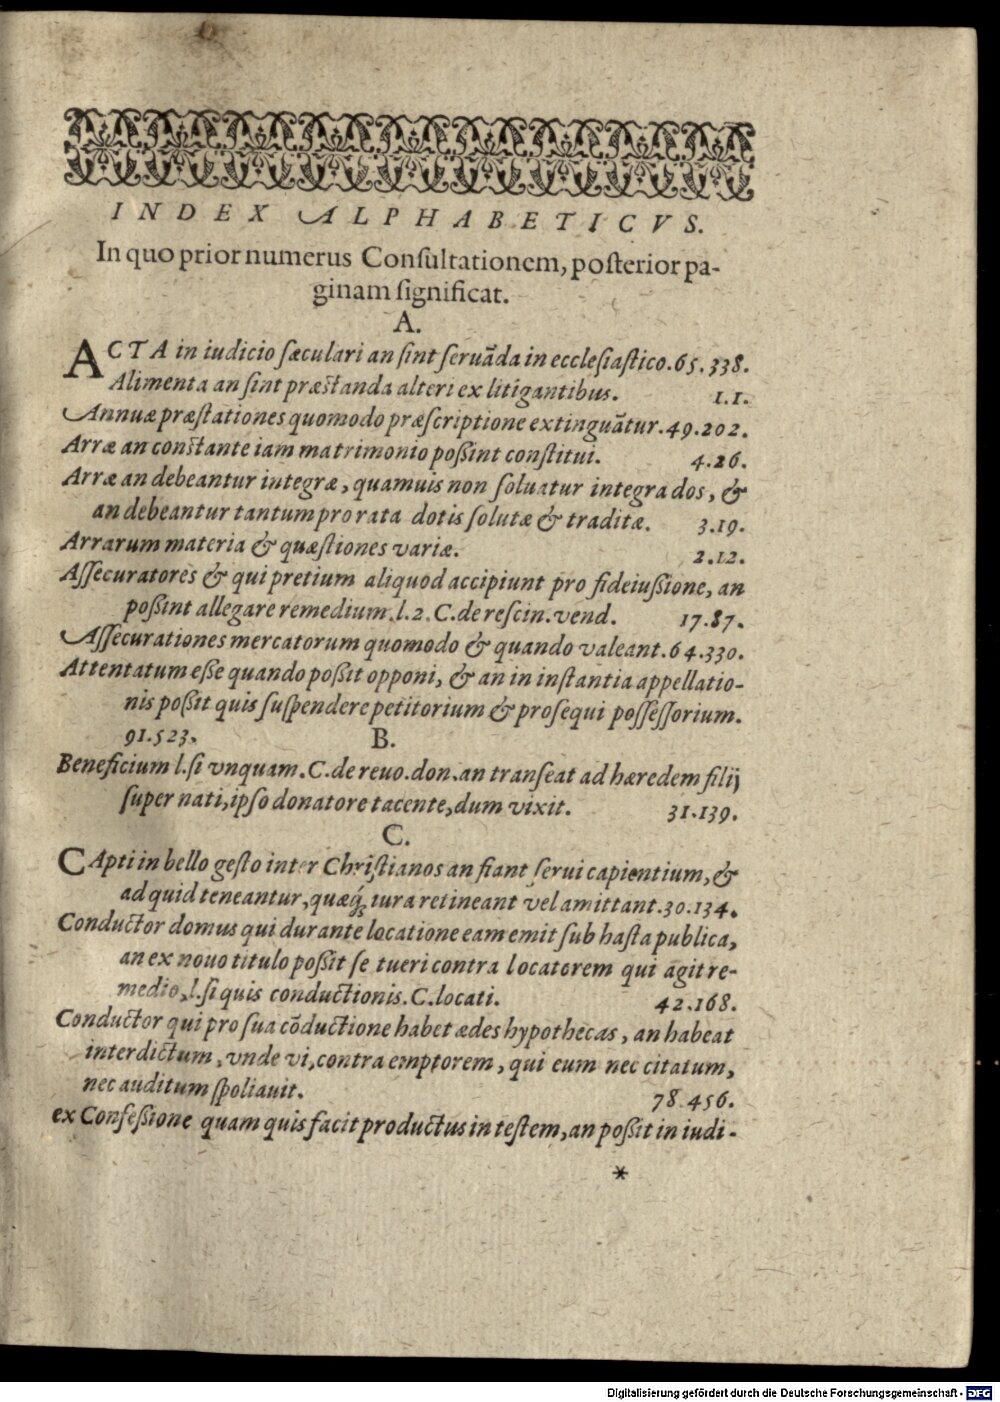 INDEX ALPHABETICVS.
In quo prior numerus Conſultationem, poſterior pa-
ginam ſignificat.
A.
ACTA in iudicio ſæculari an ſint ſeruãda in eccleſiaſtico. 65. 338.
Alimenta an ſint præſtanda alteri ex litigantibus. 1. 1.
Annuæ præſtationes quomodo præſcriptione extinguãtur. 49. 202.
Arræ an conſtante iam matrimonio poßint conſtitui. 4. 26.
Arræ an debeantur integræ, quamuis non ſoluatur integra dos, &
an debeantur tantum pro rata dotis ſolutæ & traditæ. 3. 19.
Arrarum materia & quæſtiones variæ. 2. 12.
Aſſecuratores & qui pretium aliquod accipiunt pro fideiußione, an
poßint allegare remedium. l. 2. C. de reſcin. vend. 17. 87.
Aſſecurationes mercatorum quomodo & quando valeant. 64. 330.
Attentatum eße quando poßit opponi, & an in inſtantia appellatio-
nis poßit quis ſuſpendere petitorium & proſequi poſſeſſorium.
91. 523.
B.
Beneficium l. ſi vnquam. C. de reuo. don. an tranſeat ad hæredem filij
ſuper nati, ipſo donatore tacente, dum vixit. 31. 139.
C.
CApti in bello geſto inter Chriſtianos an fiant ſerui capientium, &
ad quid teneantur, quæq́; iura retineant vel amittant. 30. 134.
Conductor domus qui durante locatione eam emit ſub haſta publica,
an ex nouo titulo poßit ſe tueri contra locatorem qui agit re-
medio, l. ſi quis conductionis. C. locati. 42. 168.
Conductor qui pro ſua cõductione habet ædes hypothecas, an habeat
interdictum, vnde vi, contra emptorem, qui eum nec citatum,
nec auditum ſpoliauit. 78. 456.
ex Confeßione quam quis facit productus in teſtem, an poßit in iudi-
*
Digitalisierung gefördert durch die Deutsche Forschungsgemeinschaft - DFG